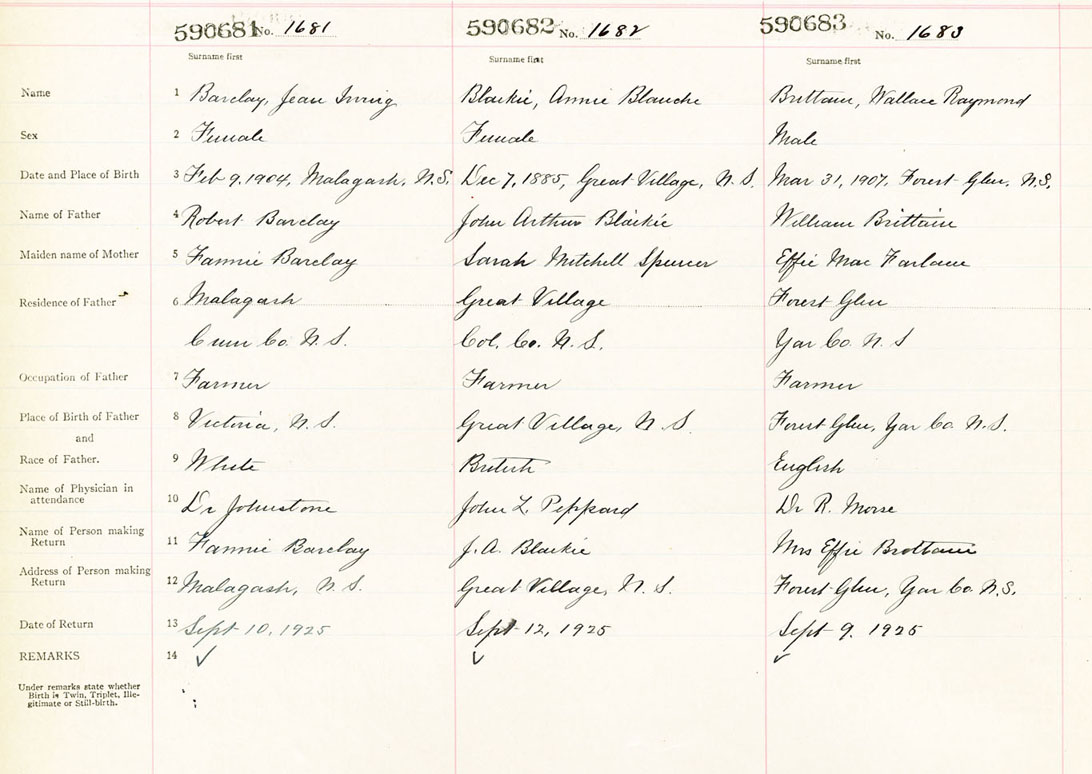 590681 No. 1681 590682 No. 1682 590683 No. 1683
Surname first Surname first Surname first
Name 1 Barclay, Jean Irving Blaikie, Annie Blanche Brittain, Wallace Raymond
Sex 2 Female Female Male
Date and Place of Birth 3 Feb 9, 1904, Malagash, N.S. Dec 7, 1885, Great Village, N.S. Mar 31, 1907, Forest Glen, N.S.
Name of Father 4 Robert Barclay John Arthur Blaikie William Brittain
Maiden name of Mother 5 Fannie Barclay Sarah Mitchell Spencer Effie Mac Farlane
Residence of Father 6 Malagash Great Village Forest Glen
Cum Co. N.S. Col. Co. N.S. Yar Co. N.S
Occupation of Father 7 Farmer Farmer Farmer
Place of Birth of Father 8 Victoria, N.S. Great Village, N.S. Forest Glen, Yar Co. N.S.
and
Race of Father. 9 White British English
Name of Physician in
attendance 10 Dr Johnstone John L. Peppard Dr R. Morse
Name of Person making
Return 11 Fannie Barclay J. A. Blaikie Mrs Effie Brottain
Address of Person making
Return 12 Malagash, N.S. Great Village, N.S. Forest Glen, Yar Co. N.S.
Date of Return 13 Sept 10, 1925 Sept 12, 1925 Sept 9. 1925
REMARKS 14 ✓ ✓ ✓
Under remarks state whether
Birth is Twin, Triplet, Ille-
gitimate or Still-birth.